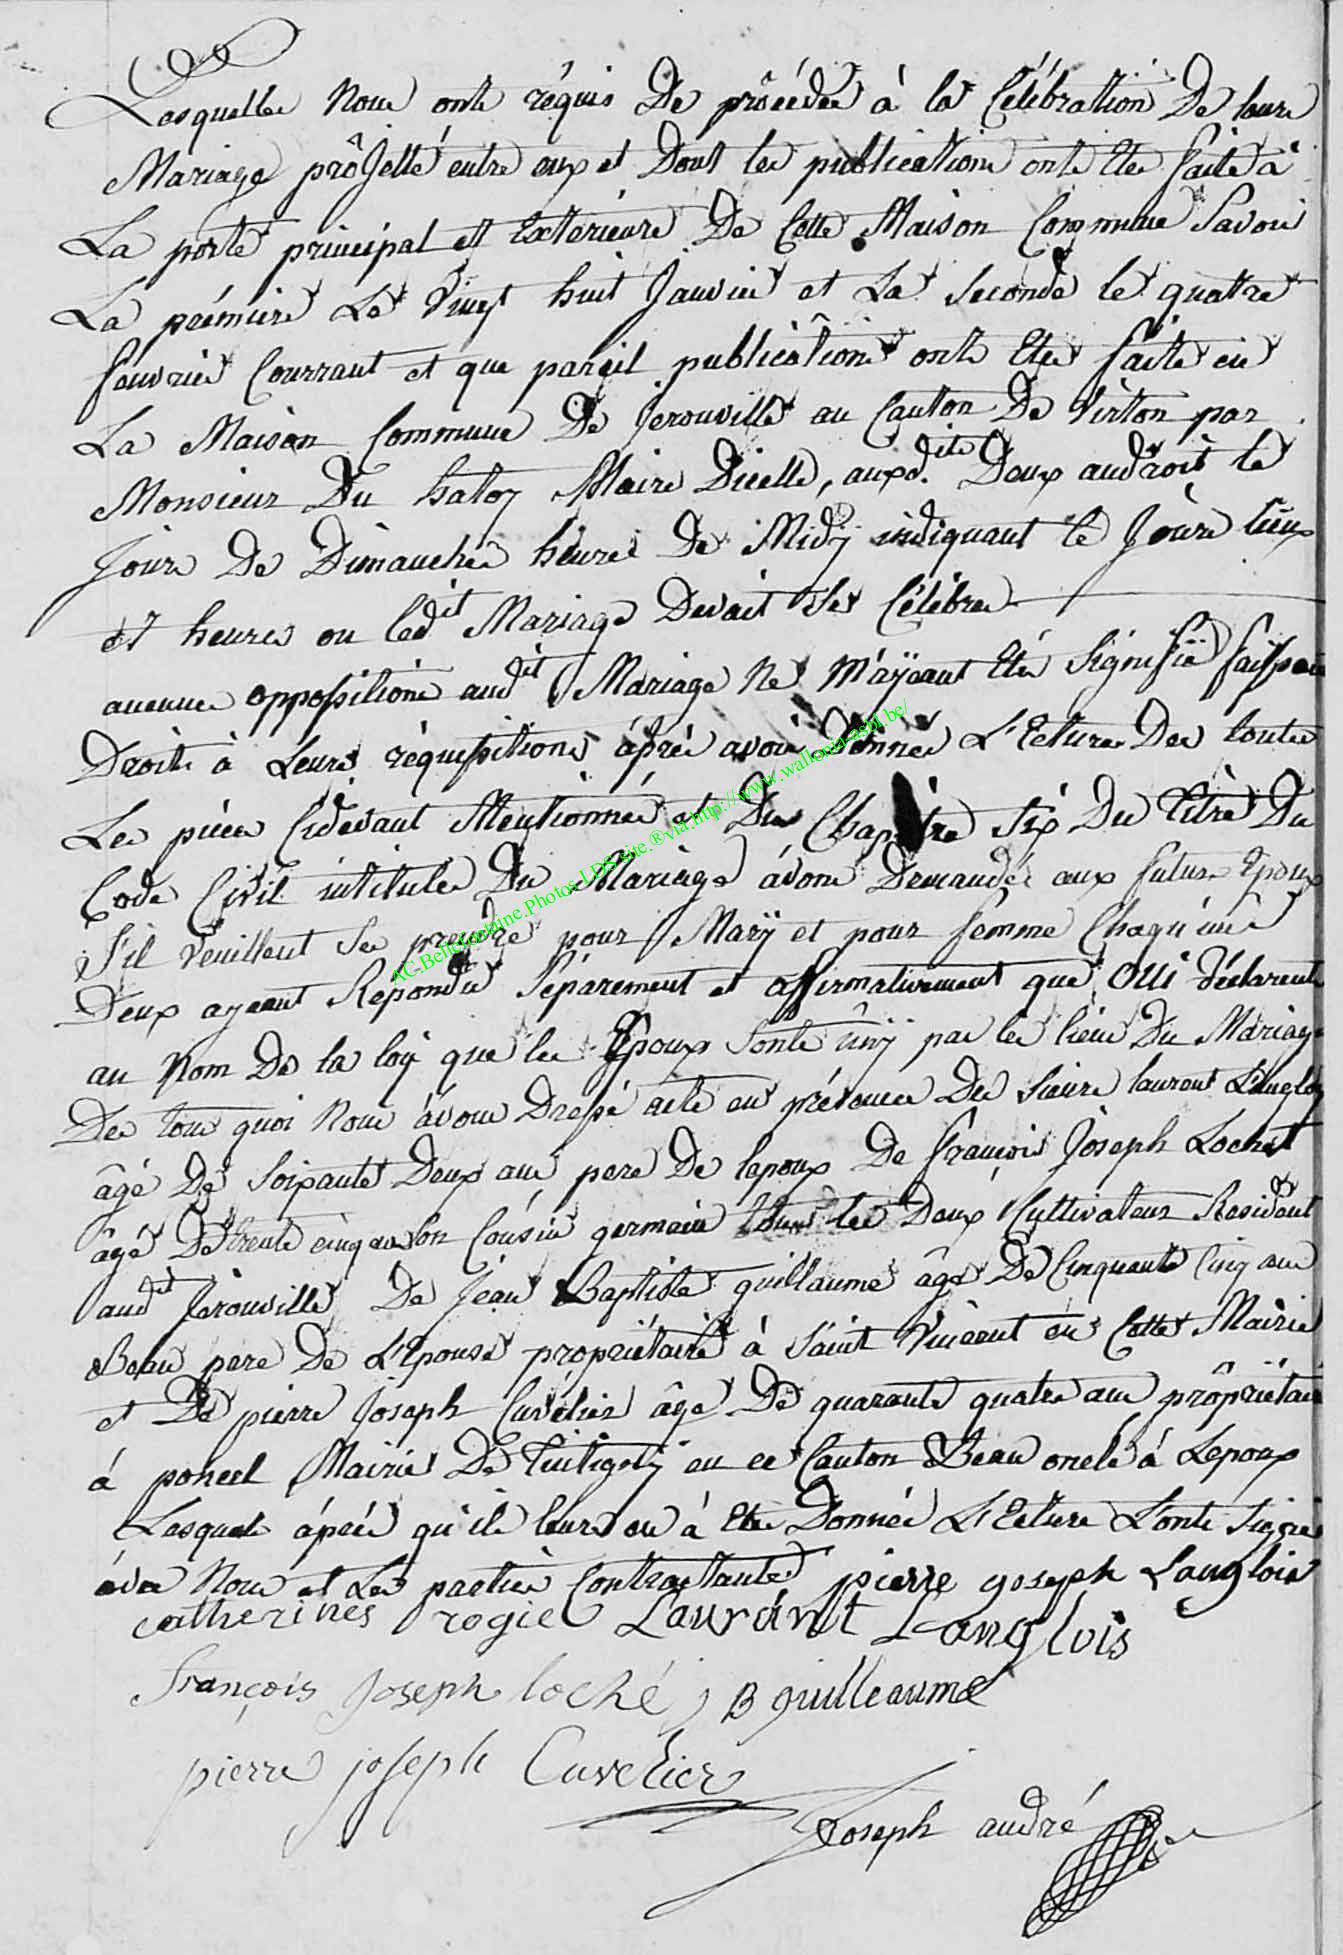 Lesquelles Nous onts réquis De prôcéder à la Célébration De leurs
Mariage prôjetté entre eux et Dont les publications onts Etés faite à
La porte principal et Exterieure De Cette Maison Commune Savoir
La prémiere Le Vingt huit Janvier et La Seconde le quatre
fevrier Courrant et que pareil publicâtions onts Etés faite en
La Maison Commune De jerouville au Canton De Virton par
Monsieur Du hattoy Maire Dicelle, auxd.ite Deux audroit le
Jours De Dimanches heures De Midÿ indiquant le Jours lieux
et heures ou Ledit Mariage Devait Ses Célébrer
aucunes oppositions audit Mariage Ne M'aÿeant Etés Signifié faissan
Droits à Leurs réquisitions áprés avoir Donnés L'Ecture Des toutes
Les pieces Cidevant Mentionnés et Du Chapitre Six Du Titre Du
Code Civil intitules Du Mariage avons Demandés aux futurs Epoux
S'il Veuillent Se prendre pour Marÿ et pour femme Chaqu'uns
Deux ayeant Repondu Séparement et affirmativement que Oui déclarents
au Nom De la loÿ que les Epoux Sonts ûnÿ par les liens Du Mariage
De tous quoi Nous ávons Dressé acte en présence Des Sieurs laurent L'angloy
âgé De Soixante Deux ans pere De lepoux De françois Jôseph Lochet
âgé De trente cinq ans Son Coúsin germain tous les Deux Cultivateur Résident
audit Jérouville De Jean Baptiste guillaume âgé De Cinquante Cinq ans
Beau pere De L'Epouse propriétaire à Saint Vincent en Cette Mairie
et De pierre Joseph Cuvelier âgé De quarante quatre ans prôpriétaire
á poncel Mairie De Tintigny en ce Canton Beau oncle á Lepoux
Lesquels áprés qu'ils leurs en à Etés Donnée L'Ecture L'onts Signés
avec Nous et Les parties Contractantes pierre goseph Langlois
catherines rogie Laurànt Langlois
françois Joseph loché j B guilleaume
pierre joseph Cuvelier
Joseph andré
AC.Bellefontaine.Photos LDS site.®via.http://www.wallonia-asbl.be/